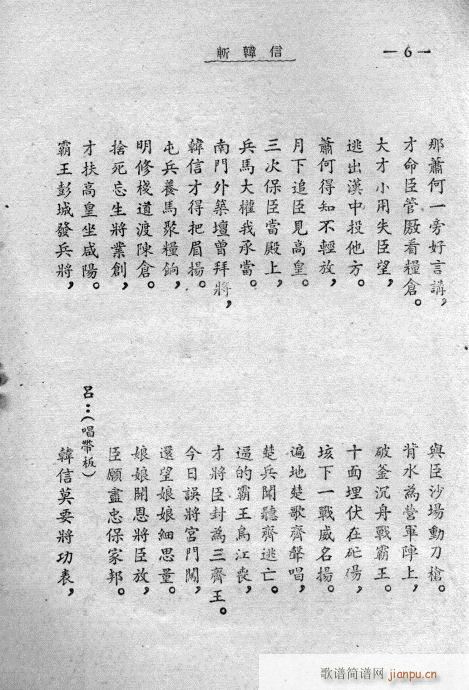 斬韓信
—6—
那蕭何一旁好言講，
才命臣管廒看糧倉。
大才小用失臣望，
逃出漢中投他方。
蕭何得知不輕放，
月下追臣見高皇。
三次保臣當殿上，
兵馬大權我承當。
南門外築壇曾拜將，
韓信才得把眉揚。
屯兵養馬聚糧餉，
明修棧道渡陳倉。
捨死忘生將業創，
才扶高皇坐咸陽。
霸王彭城發兵將，
與臣沙場動刀槍。
背水為營軍陣上，
破釜沉舟戰霸王。
十面埋伏在芒碭，
垓下一戰威名揚。
遍地楚歌齊聲唱，
楚兵聞聽齊逃亡。
逼的霸王烏江喪，
才將臣封為三齊王。
今日誤將宮門闖，
還望娘娘細思量。
娘娘開恩將臣放，
臣願盡忠保家邦。
呂：（唱帶板）
韓信莫要將功表，
歌谱简谱网
jianpu.cn